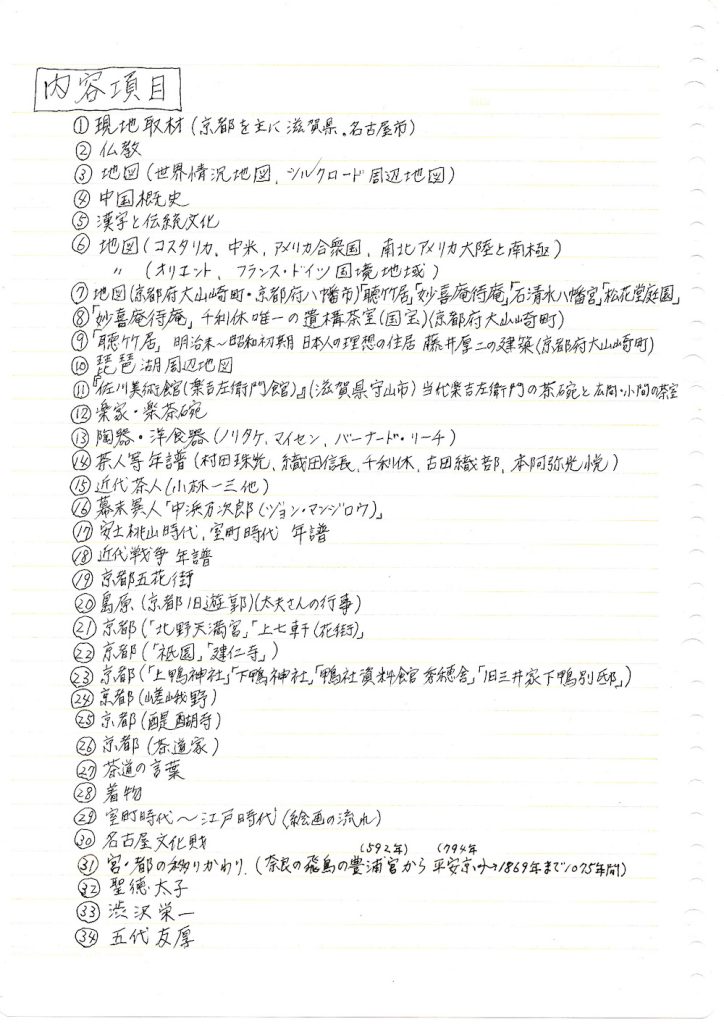 内容項目
① 現地取材(京都を主に滋賀県、名古屋市)
② 仏教
③ 地図(世界情況地図、シルクロード周辺地図)
④ 中国概史
⑤ 漢字と伝統文化
⑥ 地図(コスタリカ、中米、アメリカ合衆国、南北アメリカ大陸と南極)
〃 (オリエント、フランス・ドイツ国境地域)
⑦ 地図(京都府大山崎町・京都府八幡市)「聴竹居」「妙喜庵待庵」「石清水八幡宮」「松花堂庭園」
⑧ 「妙喜庵待庵」千利休唯一の遺構茶室(国宝)(京都府大山崎町)
⑨ 「聴竹居」明治末〜昭和初期 日本人の理想の住居 藤井厚二の建築(京都府大山崎町)
⑩ 琵琶湖周辺地図
⑪ 『佐川美術館(樂吉左衛門館)』(滋賀県守山市) 当代樂吉左衛門の茶碗と広間・小間の茶室
⑫ 楽家・楽茶碗
⑬ 陶器・洋食器(ノリタケ、マイセン、バーナード・リーチ)
⑭ 茶人等年譜(村田珠光、織田信長、千利休、古田織部、本阿弥光悦)
⑮ 近代茶人(小林一三他)
⑯ 幕末異人「中浜万次郎(ジョン・マンジロウ)」
⑰ 安土桃山時代、室町時代 年譜
⑱ 近代戦争年譜
⑲ 京都五花街
⑳ 島原(京都旧遊郭)(太夫さんの行事)
㉑ 京都(「北野天満宮」「上七軒(花街)」
㉒ 京都(「祇園」「建仁寺」)
㉓ 京都(「上鴨神社」「下鴨神社」「鴨社資料館 秀穂舎」「旧三井家下鴨別邸」)
㉔ 京都(嵯峨野)
㉕ 京都(醍醐寺)
㉖ 京都(茶道家)
㉗ 茶道の言葉
㉘ 着物
㉙ 室町時代〜江戸時代(絵画の流れ)
㉚ 名古屋文化財
(592年) (794年)
㉛ 宮・都の移りかわり(奈良の飛鳥の豊浦宮から平安京へ→1869年まで1075年間)
㉜ 聖徳太子
㉝ 渋沢栄一
㉞ 五代友厚